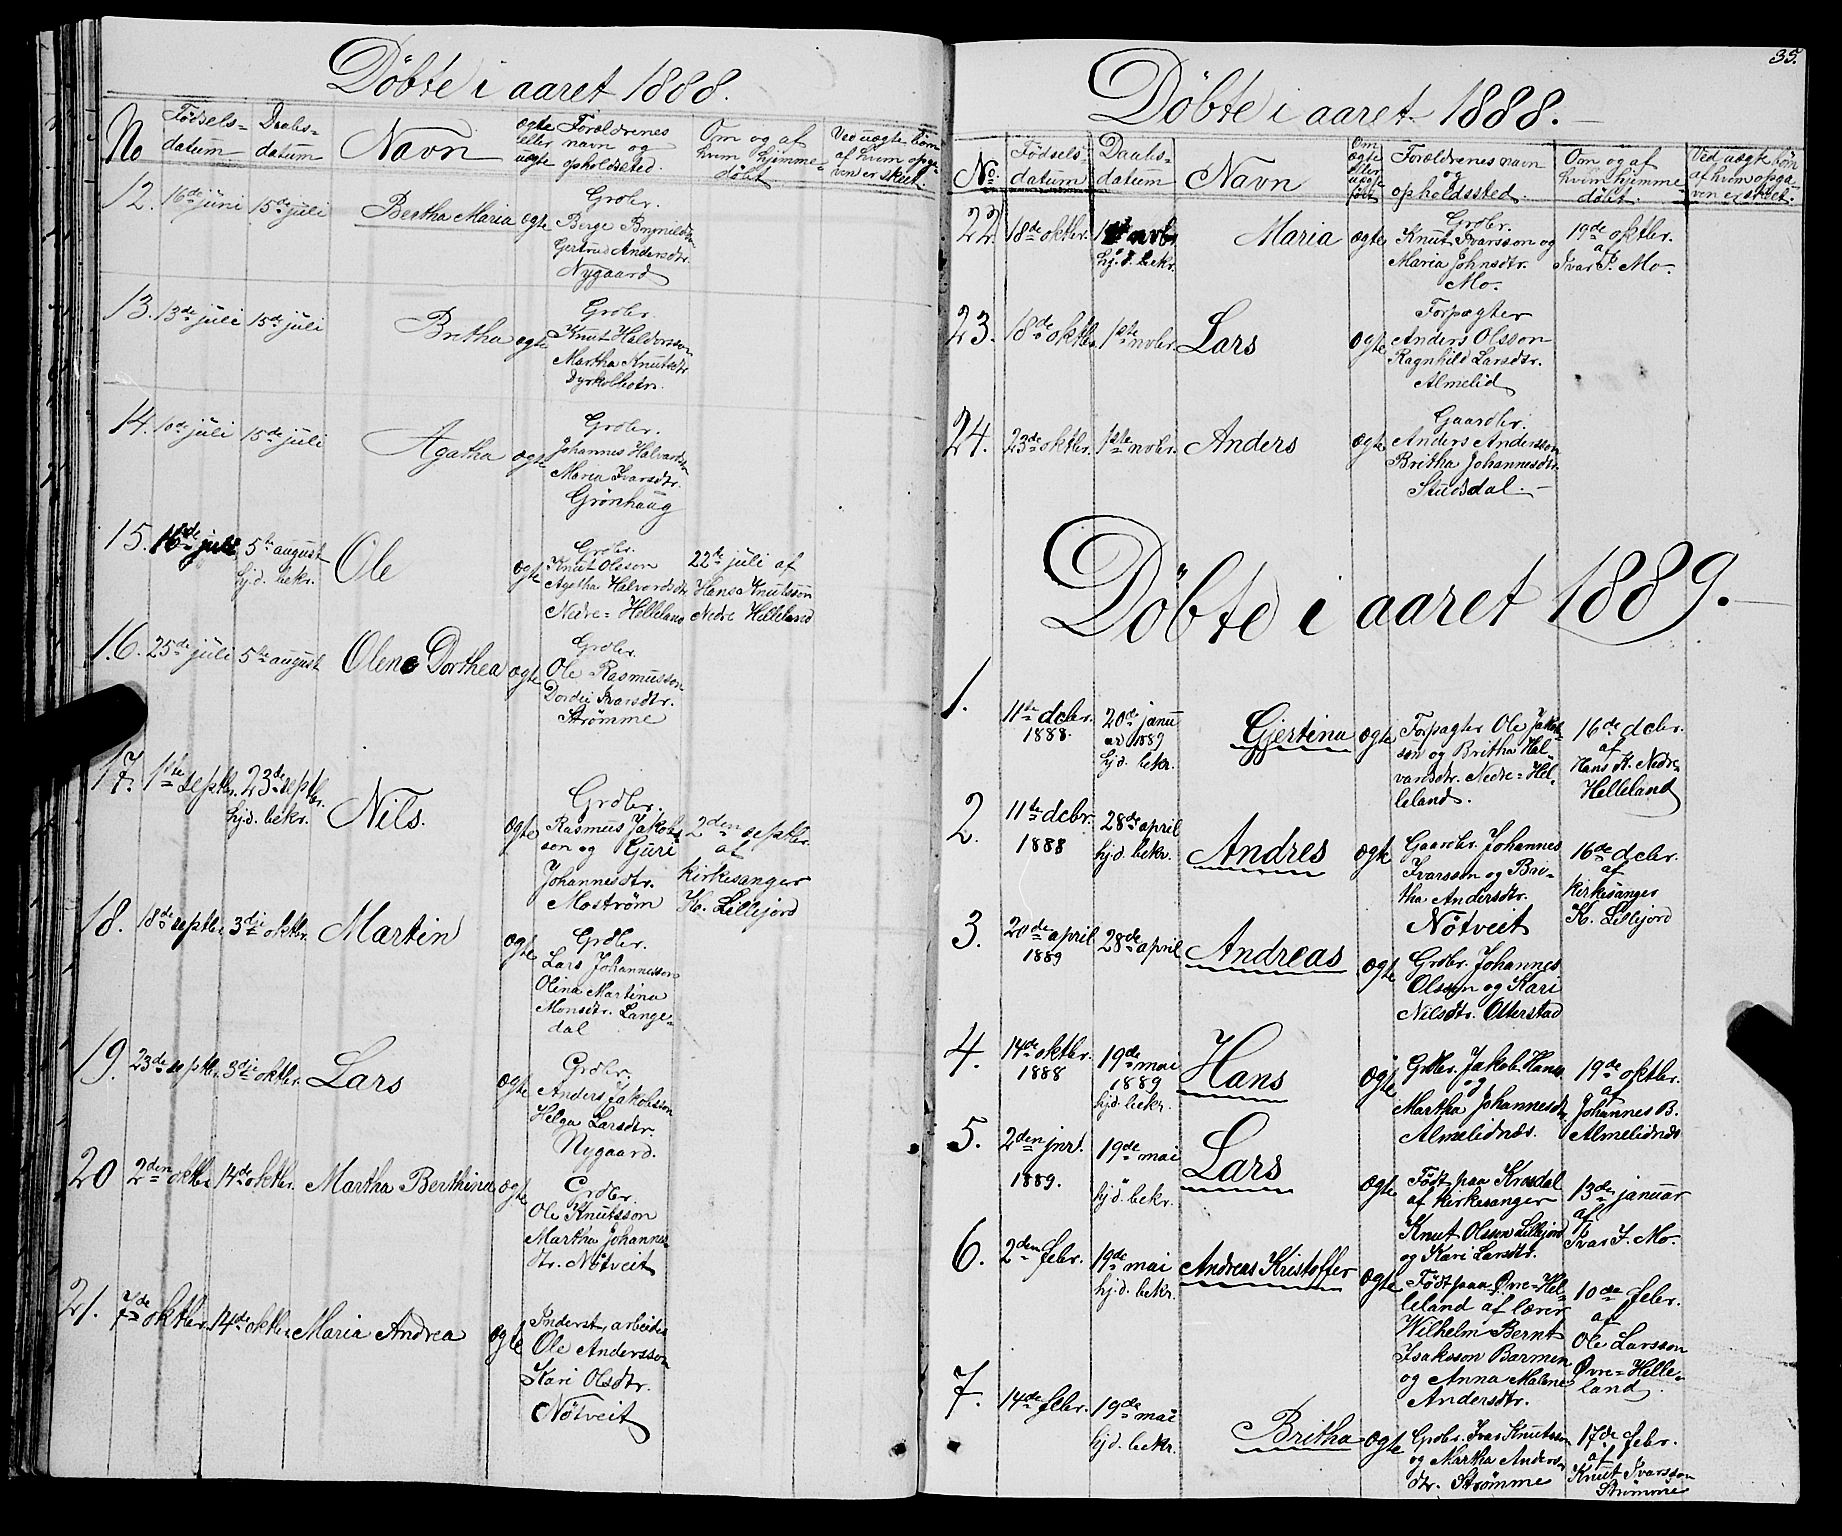 Döbte i aaret 1888.
No
Födsels=
datum
Daabs=
datum
Navn
ægte
eller
uægte
Forældrenes
navn og
opholdssted
Om og af
hvem hjemme=
döbt
Ved uægte börn
af hvem opga=
ven er skeet.
12. 16de juni 15de juli Bertha Maria ægte
Grdbr.
Berge Brynilds
Gertrud Andersdtr.
Nygaard
13. 13de juli 15de juli Britha ægte
Grdbr.
Knut Haldorsson
Martha Knutsdtr
Dyrkolbotn.
14. 10de juli 15de juli Agatha ægte
Grdbr.
Johannes Halvardson
Maria Ivarsdtr.
Grönhaug
15. 16de juli 5te august
hj.d. bekr.
Ole ægte
Grdbr.
Knut Olsson
Agatha Halvordsdtr
Nedre=Helleland
22de juli af
Hans Knutsson
Nedre Helleland
16. 25de juli 5te august Olene Dorthea ægte
Grdbr.
Ole Rasmusson
Dordei Ivarsdtr.
Strömme
17. 1ste septbr. 23de septbr.
hj.d. bekr.
Nils. ægte
Grdbr.
Rasmus Jakobs
son og Guri
Johannesdtr.
Moström
2den septbr.
af
kirkesanger
K. Lillejord
18. 18de septbr. 3die oktbr. Martin ægte
Grdbr.
Lars Johannesson
Olina Martina
Monsdtr. Lange=
dal
19. 23de septbr. 3die oktbr. Lars ægte
Grdbr.
Anders Jakobsson
Helga Larsdtr.
Nygaard.
20 2den oktbr 14de oktbr. Martha Berthina ægte
Grdbr.
Ole Knutsson
Martha Johannes=
dtr. Nötveit
21. 7de oktbr. 14de oktbr. Maria Andrea ægte
Inderst, arbeider
Ole Andersson
Kari Olsdtr.
Nötveit
35.
Döbte i aaret 1888.
No.
Födsels
datum
Daabs=
datum
Navn
Om
ægte
eller
uægte
födt
Forældrenes navn
og
opholdssted.
Om og af
hvem hjemme=
döbt.
Ved uægte börn
af hvem opga=
ven er skeet.
22. 18de oktbr. 1ste novbr
hj.d. bekr.
Maria ægte
Grdbr.
Knut Ivarsson og
Maria Johnsdtr.
Mo.
19de oktbr.
af
Ivar I. Mo.
23. 18de oktbr. 1ste novbr. Lars ægte
Forpagter
Anders Olsson
Ragnhild Larsdtr.
Almelid
24. 23de oktbr. 1ste novbr. Anders ægte
Gaardbr.
Anders Andersson
Britha Johannesdtr.
Studsdal.
Döbte i aaret 1889.
1. 11te dcbr.
1888.
20de janu
ar 1889
hj.d. bekr.
Gjertina ægte
Forpagter Ole Jakob
son og Britha Hal=
varsdtr. Nedre=Hel=
leland.
16de dcbr.
af
Hans K. Nedre=
Helleland
2. 11te dcbr.
1888
28de april
hj.d. bekr.
Andres ægte
Gaardbr. Johannes
Ivarsson og Bri=
tha Andersdtr.
Nötveit
16de dcbr.
af
kirkesanger
K. Lillejord
3. 20de april
1889
28de april Andreas ægte
Grdbr. Johannes
Olsson og Kari
Nilsdtr. Otterstad
4. 14de oktbr.
1888
19de mai
1889
hj.d. bekr.
Hans ægte
Grdbr. Jakob Hans
og
Martha Johannesdtr
Almelidnæs.
19de oktbr.
af
Johannes B.
Almelidnæs
5. 2den jnr.
1889.
19de mai
hj.d. bekr.
Lars ægte
Födt paa Krosdal
af kirkesanger
Knut Olsson Lillejord
og Kari Larsdtr.
13de januar
af
Ivar I. Mo.
6. 2den febr. 19de mai
hj.d. bekr.
Andreas Kristoffer ægte
Födt paa Øvre=Hel=
leland af lærer
Wilhelm Bernt
Isaksson Barmen
og Anna Malene
Andersdtr.
10de febr.
af
Ole Larsson
Øvre=Helle=
land
7. 14de febr. 19de mai
hj.d. bekr.
Britha ægte
Grdbr. Ivar Knutsson
og Martha Anders
dtr. Strömme
17de febr.
af
Knut Ivarsson
Strömme